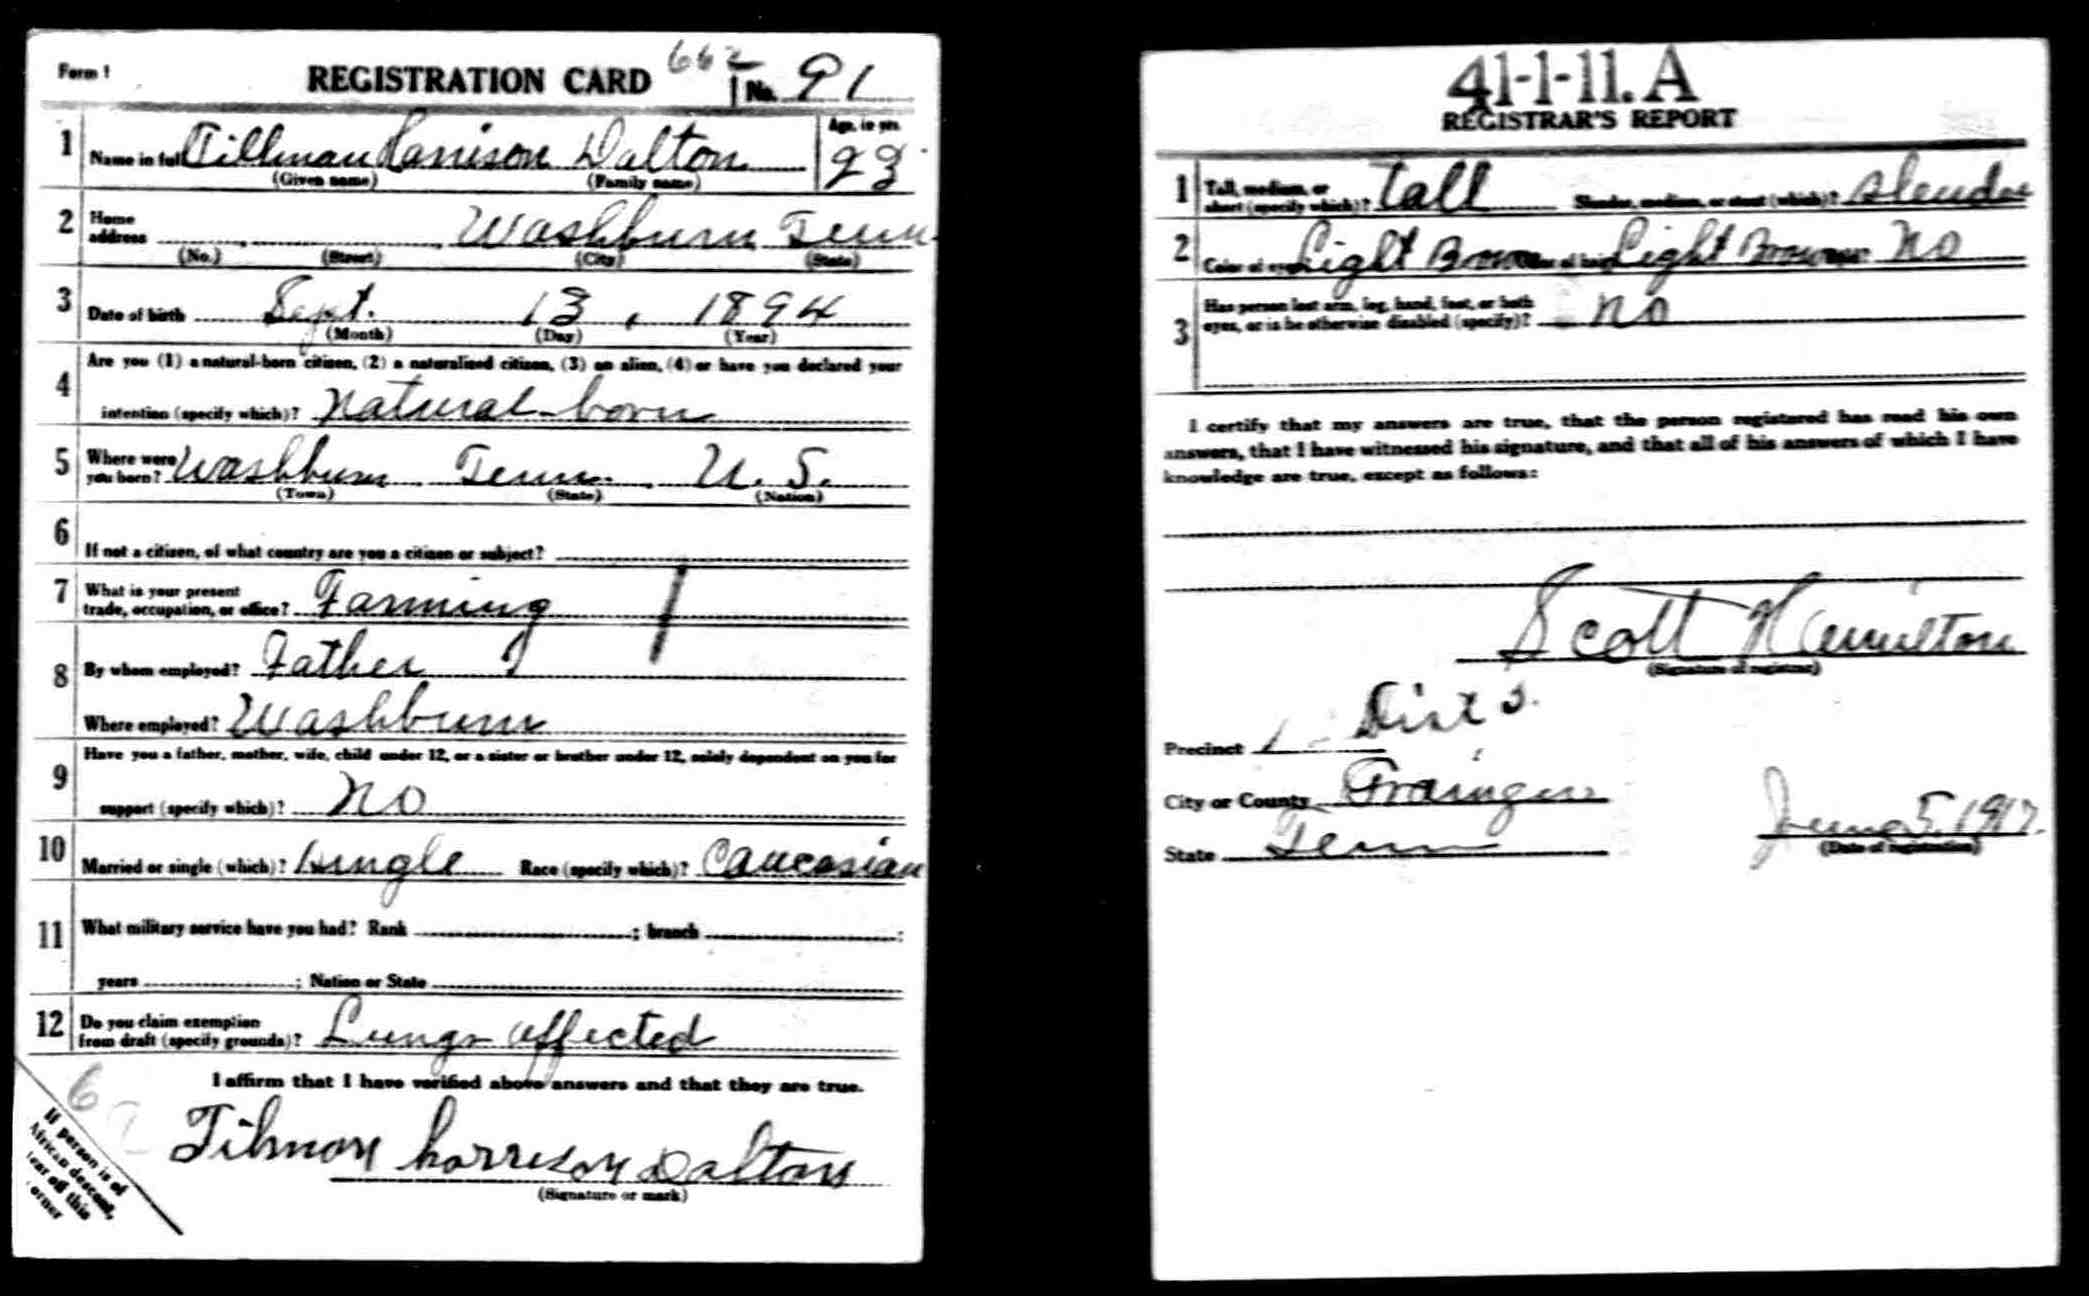 Form 1 REGISTRATION CARD 662 No. 91
1 Name in full Tillman Harrison Dalton Age, in yrs. 23
(Given name) (Family name)
2 Home address Washburn Tenn
(No.) (Street) (City) (State)
3 Date of birth Sept. 13, 1894
(Month) (Day) (Year)
4 Are you (1) a natural-born citizen, (2) a naturalized citizen, (3) an alien, (4) or have you declared your
intention (specify which)? Natural born
5 Where were you born? Washburn Tenn. U. S.
(Town) (State) (Nation)
6 If not a citizen, of what country are you a citizen or subject?
7 What is your present
trade, occupation, or office? Farming
8 By whom employed? Father
Where employed? Washburn
9 Have you a father, mother, wife, child under 12, or a sister or brother under 12, solely dependent on you for
support (specify which)? No
10 Married or single (which)? Single Race (specify which)? Caucasian
11 What military service have you had? Rank ; branch ;
years ; Nation or State
12 Do you claim exemption
from draft (specify grounds)? Lungs affected
I affirm that I have verified above answers and that they are true.
Tilmon horrison Dalton
(Signature or mark)
6
If person is of
African descent,
tear off this
corner
41-1-11. A
REGISTRAR'S REPORT
1 Tall, medium, or
short (specify which)? Tall Slender, medium, or stout (which)? Slender
2 Color of eyes Light Brown Color of hair Light Brown No
3 Has person lost arm, leg, hand, foot, or both
eyes, or is he otherwise disabled (specify)? No
I certify that my answers are true, that the person registered has read his own
answers, that I have witnessed his signature, and that all of his answers of which I have
knowledge are true, except as follows:
Scott Hamilton
(Signature of registrar)
Precinct 1 - Dist 3.
City or County Grainger
State Tenn June 5, 1917.
(Date of registration)